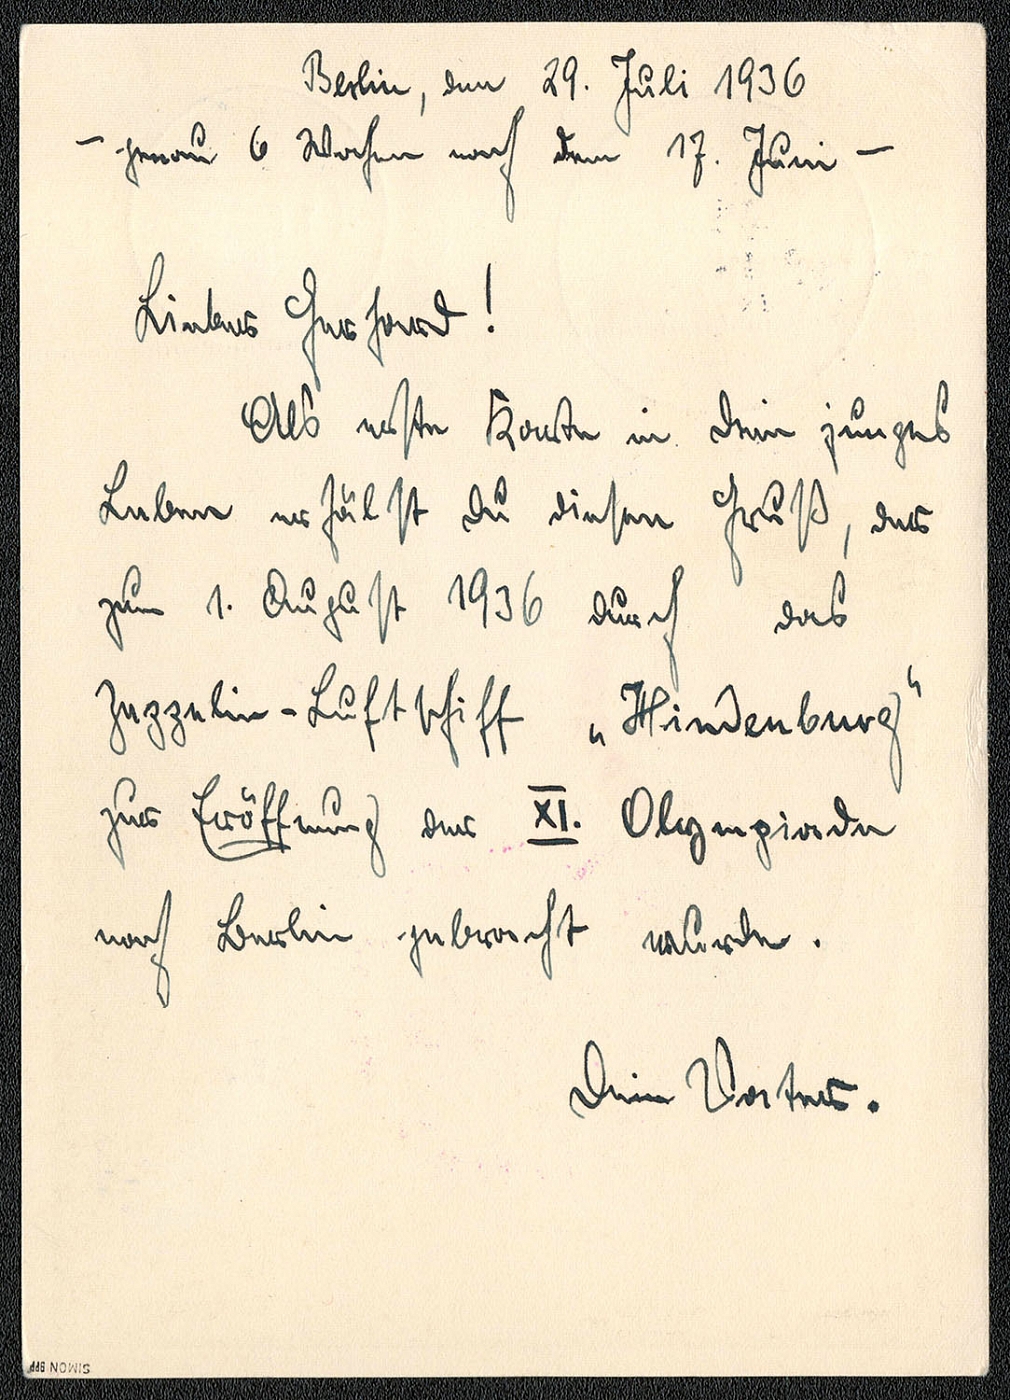 Berlin, den 29. Juli 1936
— genau 6 Wochen nach dem 17. Juni —
Lieber Gerhard!
Als erste Karte in Dein junges
Leben erhälst Du diesen Gruß, der
zum 1. August 1936 durch das
Zeppelin-Luftschiff „Hindenburg“
zur Eröffnung der XI. Olympiade
nach Berlin gebracht wurde.
Dein Vater.
SIMON BPP